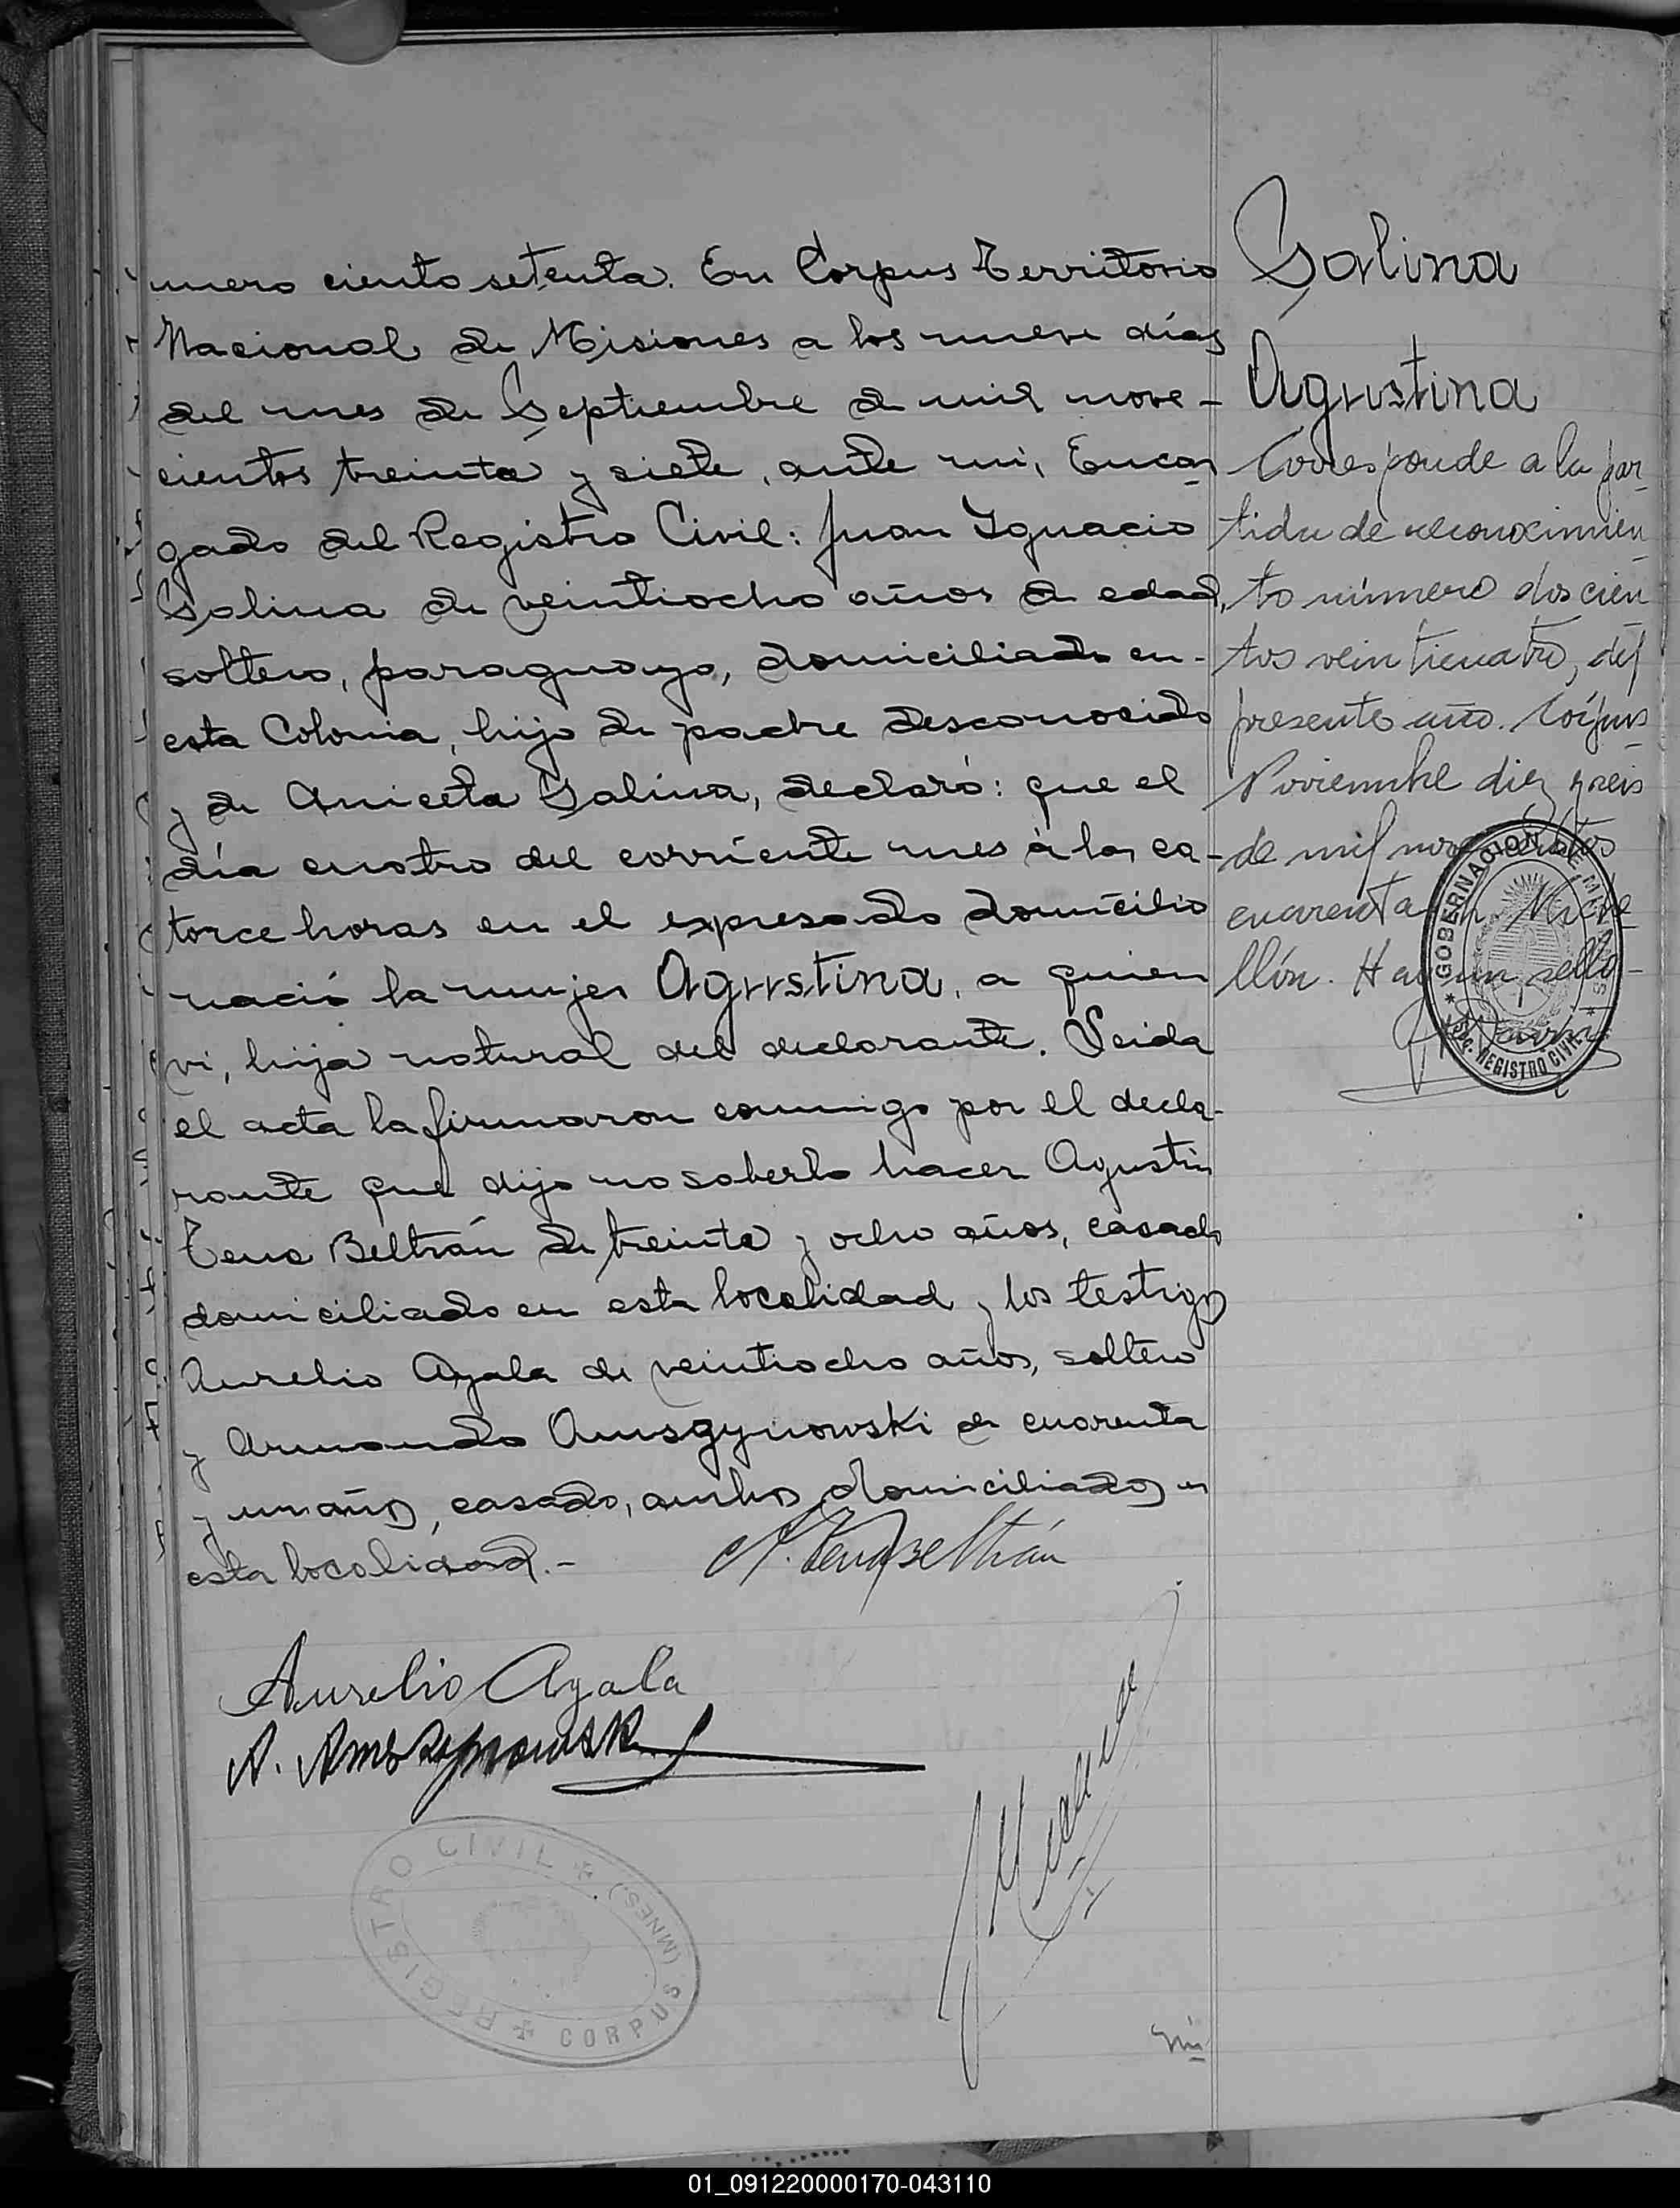 mero ciento setenta. En Corpus Territorio
Nacional de Misiones a los nueve días
del mes de Septiembre de mil nove-
cientos treinta y siete, ante mi, Encar-
gado del Registro Civil: Juan Ignacio
Salina de veintiocho años de edad,
soltero, paraguayo, domiciliado en-
esta Colonia, hijo de padre desconocido
y de Aniceta Salina, declaró: que el
día cuatro del corriente mes à las ca-
torce horas en el expresado domicilio
nació la mujer Agustina, a quien
vi, hija natural del declarante. Leida
el acta la firmaron conmigo por el decla-
rante que dijo no saberlo hacer Agustín
Tena Beltrán de treinta y ocho años, casado
domiciliado en esta localidad y los testigos
Aurelio Ayala de veintiocho años, soltero
y Armando Amszynowski de cuarenta
y un años, casado, ambos domiciliados en
esta localidad.-
A. Tena Beltrán
Aurelio Ayala
A. Amszynowski
REGISTRO CIVIL
CORPUS (MNES)
Salina
Agustina
Corresponde a la par-
tida de reconocimien-
to número doscien-
tos veinticuatro, del
presente año. Corpus
Noviembre diez y seis
de mil novecientos
cuarenta
llón. Hay un sello-
GOBERNACION DE MISIONES
SEC. REGISTRO CIVIL
01_091220000170-043110